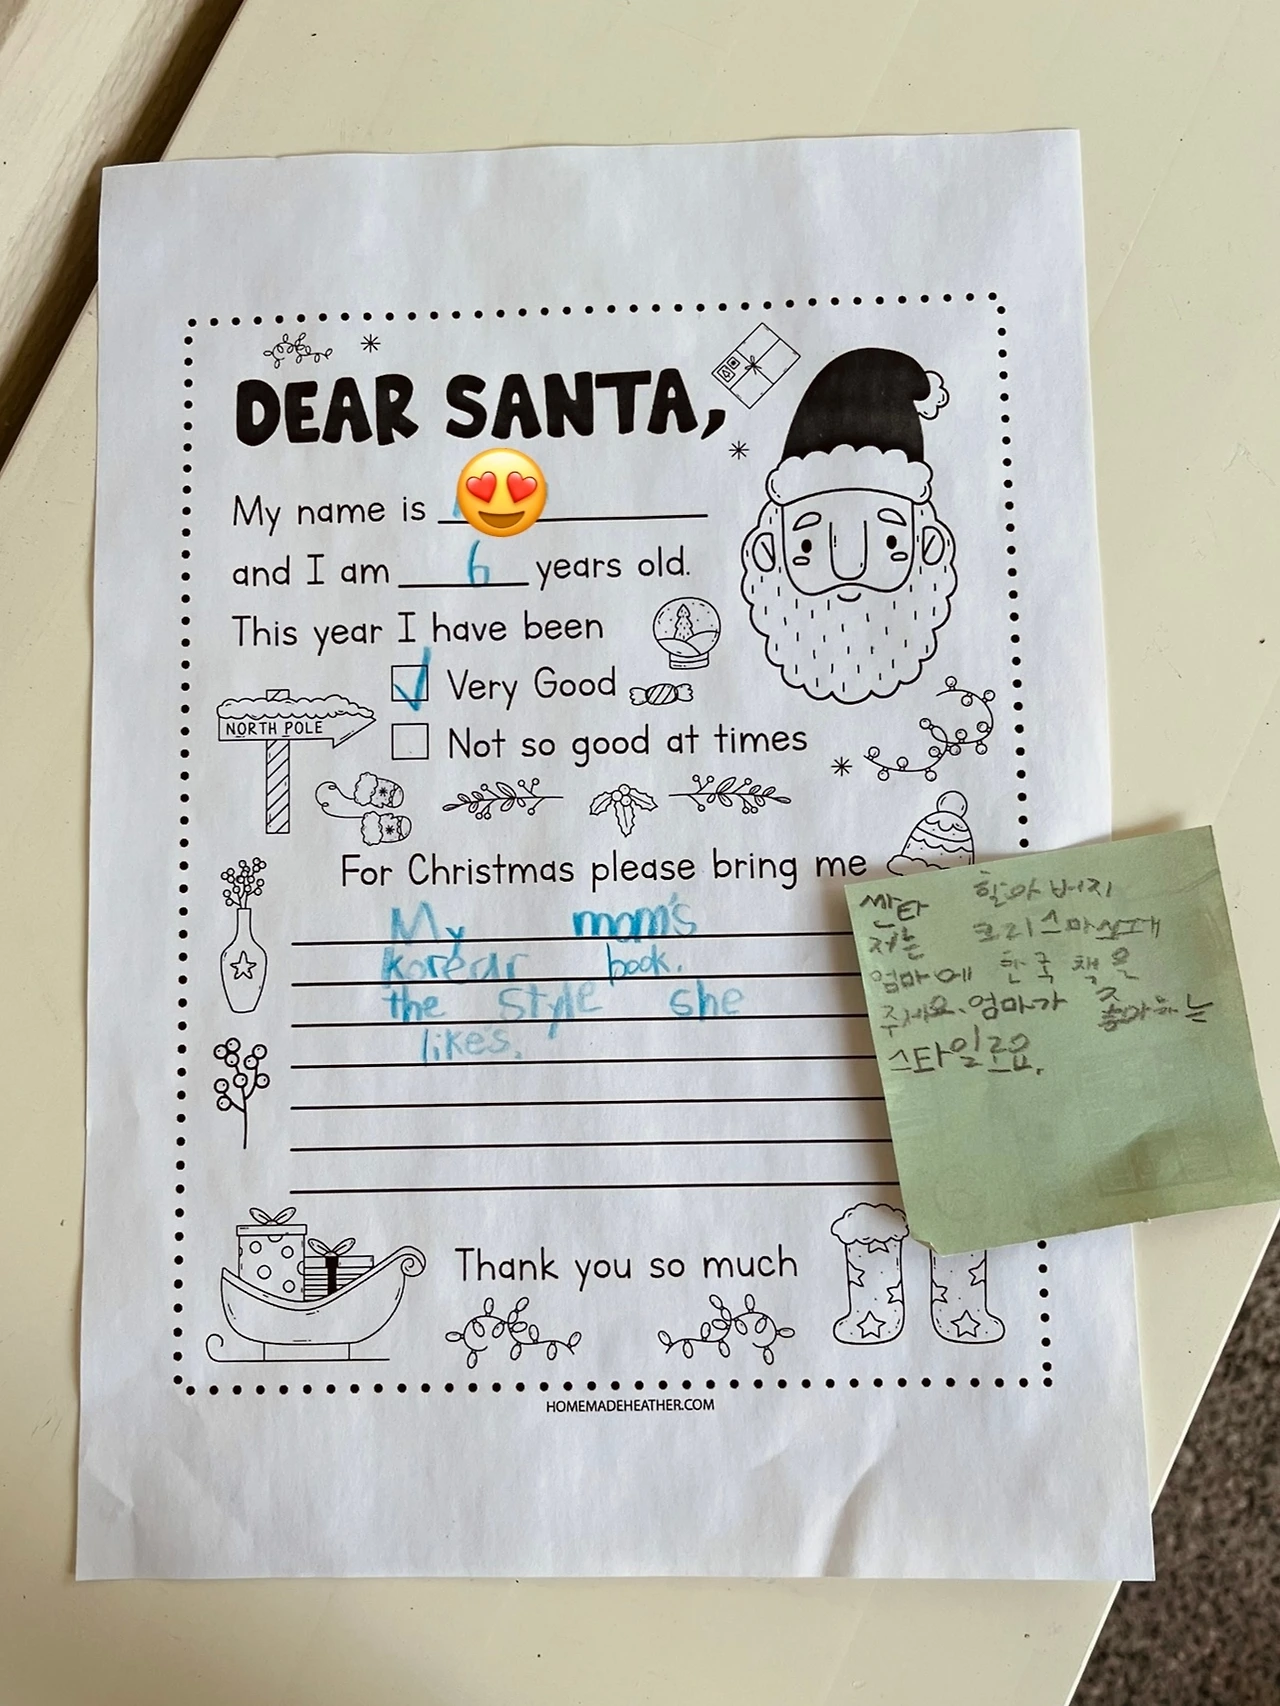 DEAR SANTA,
My name is
and I am 6 years old.
This year I have been
Very Good
Not so good at times
NORTH POLE
For Christmas please bring me
My mom's
Korean book.
the style she
likes.
싼타 할아버지
저는 크리스마스때
엄마에 한국 책을
주세요. 엄마가 좋아하는
스타일로요.
Thank you so much
HOMEMADEHEATHER.COM